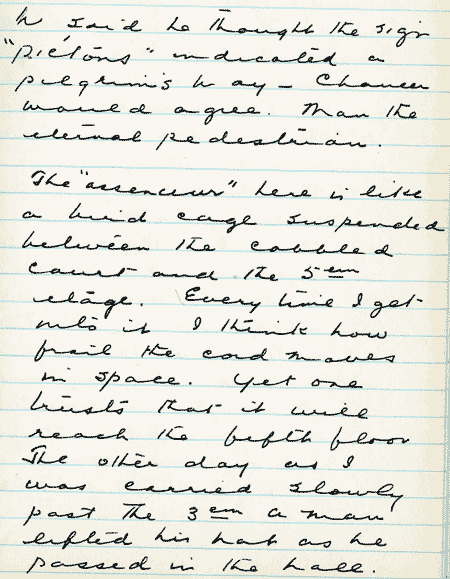 h said he thought the sign
"piétons" indicated a
pilgrim's way – Chaucer
would agree. Man the
eternal pedestrian.
The "assenceur" here is like
a bird cage suspended
between the cobbled
court and the 5em
etage. Every time I get
into it I think how
frail the cord moves
in space. Yet one
trusts that it will
reach the fifth floor
The other day as I
was carried slowly
past the 3em a man
lifted his hat as he
passed in the hall.